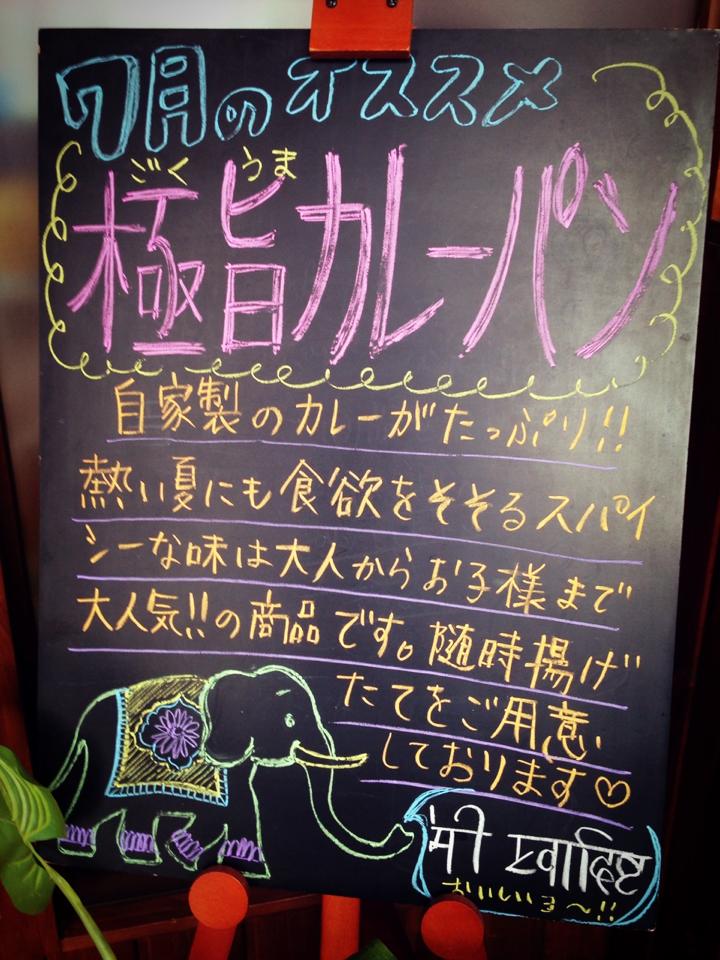 7月のオススメ
ごく うま
極旨カレーパン
自家製のカレーがたっぷり!!
熱い夏にも食欲をそそるスパイ
シーな味は大人からお子様まで
大人気!!の商品です。随時揚げ
たてをご用意
しております♡
मी स्वादिष्ट
おいしいよ〜!!